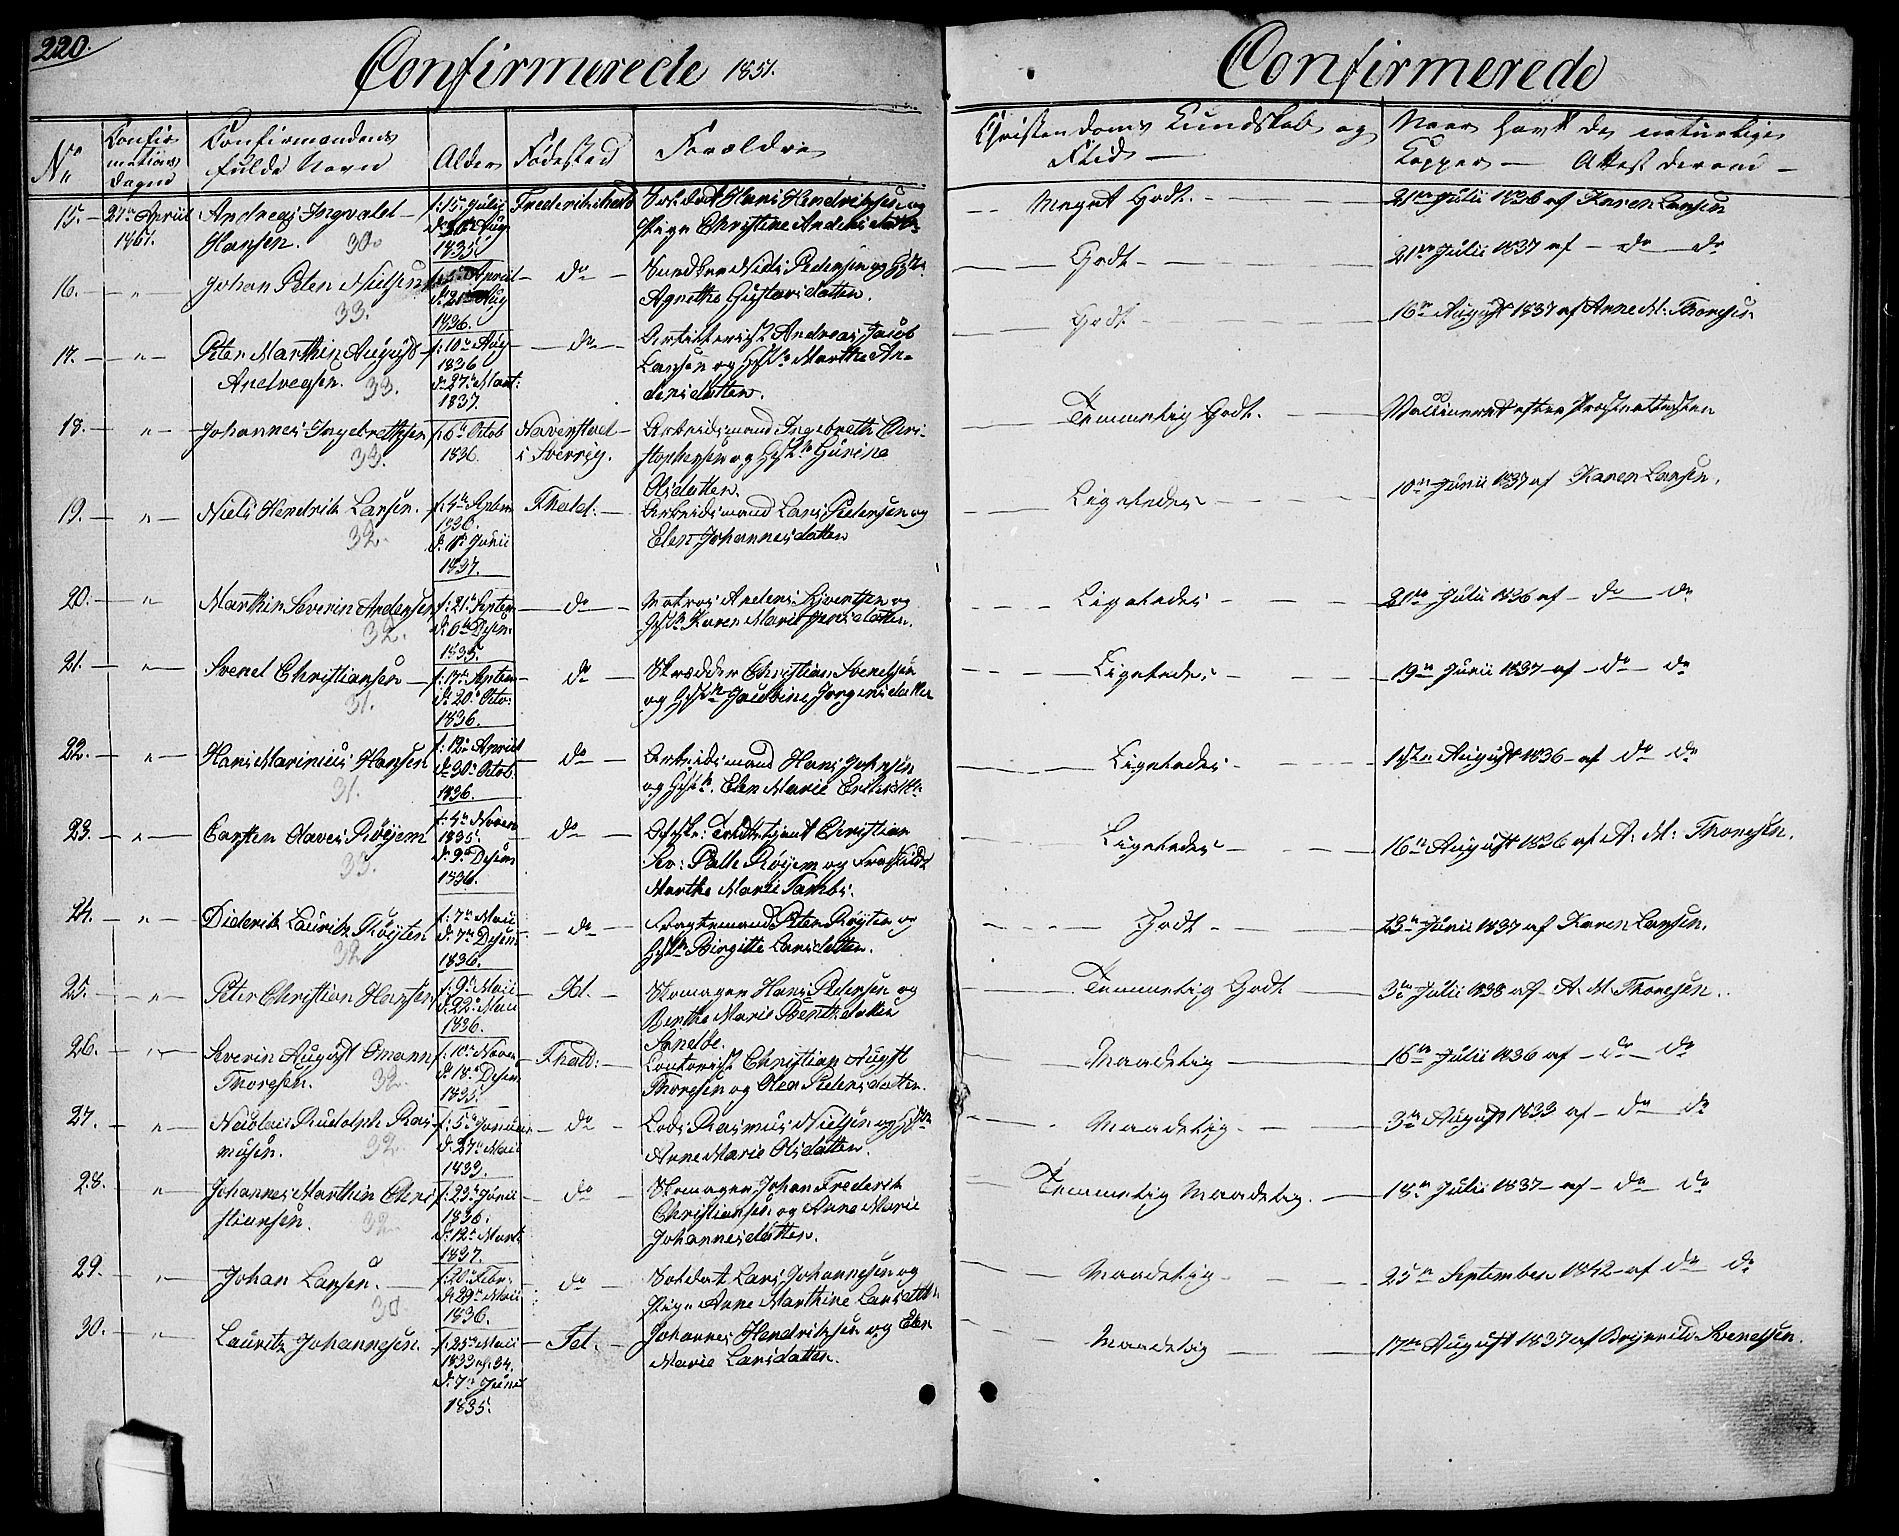 220.
Confirmerede 1851.
No
Confir
mations
Dagene
Confirmandens
fulde Navn
Alder
Fødested
Forældre
15. 21de April
1851.
Andreas Ingvald
Hansen. 30.
f: 15de Julii
d: 30te Aug
1835.
Frederikshald
Soldat Hans Hendriksen og
Pige Christine Andersdatter
16. " Johan Peter Nielsen
33.
April
d: 21de Aug
1836.
do
Niels Pedersen og Hstr.
Agnethe Gustavsdatter.
17. " Peter Marthin August
Andreasen. 33.
f: 10de Aug
1836
d: 27de Mart:
1837.
do
Andreas Jacob
Larsen og Hstr Marthe An-
dersdatter.
18. " Johannes Ingebrethsen
33.
f: 6te Octob
1836.
Naverstad
i Sverrig.
Arbeidsmand Ingebreth Chri-
stophersen og Hstr Gurine
Olsdatter.
19. " Niels Hendrik Larsen.
32.
f: 4de Septem
1836.
d: 11te Junii
1837.
Fhald:
Arbeidsmand Lars Pedersen og
Elen Johannesdatter
20. " Marthin Severin Andersen
32.
f: 21de Septem
d: 6te Desem
1835.
do
Matros Anders Sjvertsen og
Hstr Karen Marie Jensdatter.
21. " Svend Christiansen
31.
f: 17de Septem
d: 20de Octo:
1836.
do
Skrædder Christian Svendsen
og Hstr Jacobine Jørgensdatter
22. " Hans Marinius Hansen
31.
f: 12te April
d: 30te Octob
1836.
do
Arbeidsmand Hans Johnsen
og Hstr. Elen Marie Eriksdtr.
23. " Carsten Olaves Röyem
33.
f: 4de Novem
1835.
d: 9de Desem
1836.
do
Christian
Fr: Palle Röyem og
Marthe Marie Tambs.
24. " Diderik Lauritz Röyter
32
f: 7de Maii
d: 7de Desem
1836.
do
Fragtemand Peter Röyter og
Hstr Birgitte Larsdatter.
25. " Peter Christian Hansen
f: 9de Maii
d: 22de Maii
1836.
Id.
Skomager Hans Pedersen og
Berthe Marie Bentsdatter
Sandöe.
26. " Severin August Omann
Thoresen. 32.
f: 10de Novem
d: 18de Desem
1835.
Fhald:
Contorist Christian August
Thoresen og Olea Pedersdatter.
27. " Nicolai Rudolph Ras-
musen. 32.
f: 5te Januar
d: 27de Maii
1833.
do
Lods Rasmus Nielsen og Hstr
Anne Marie Olsdatter.
28. " Johannes Marthin Chri-
stiansen. 32.
f: 23de Junii
1836.
d: 12te Mart:
1837.
do
Skomager Johan Frederik
Christiansen og Anne Marie
Johannesdatter.
29. " Johan Larsen.
30.
f: 20de Febr:
d: 29de Maii
1836.
do
Soldat Lars Johannesen og
Pige Anne Marthine Larsdattr.
30. " Lauritz Johannesen.
f: 25de Maii
1833 el. 34.
d: 7de Junii
1835.
Id.
Johannes Hendriksen og Elen
Marie Larsdatter.
Confirmerede
Christendoms Kundskab og
Flid
Naar havt de naturlige
Kopper Attest derom
Meget Godt. 21de Julii 1836 af Karen Larsen
Godt 21de Julii 1837 af do do
Godt 16de August 1837 af Anne M: Thoresen
Temmelig Godt. Vaccineret efter Præsteattesten
Ligeledes 10de Junii 1837 af Karen Larsen.
Ligeledes 21de Julii 1836 af do do
Ligeledes 19de Junii 1837 af do do
Ligeledes 1ste August 1836 af do do
Ligeledes 16de August 1836 af A: M: Thoresen.
Godt 23de Junii 1837 af Karen Larsen.
Temmelig Godt 3die Julii 1838 af A. M. Thoresen.
Maadelig 16de Julii 1836 af do do
Maadelig 3die August 1833 af do do
Temmelig Maadelig. 18de Julii 1837 af do do
Maadelig 25de September 1842 af do do
Maadelig 17de August 1837 af Svendsen.